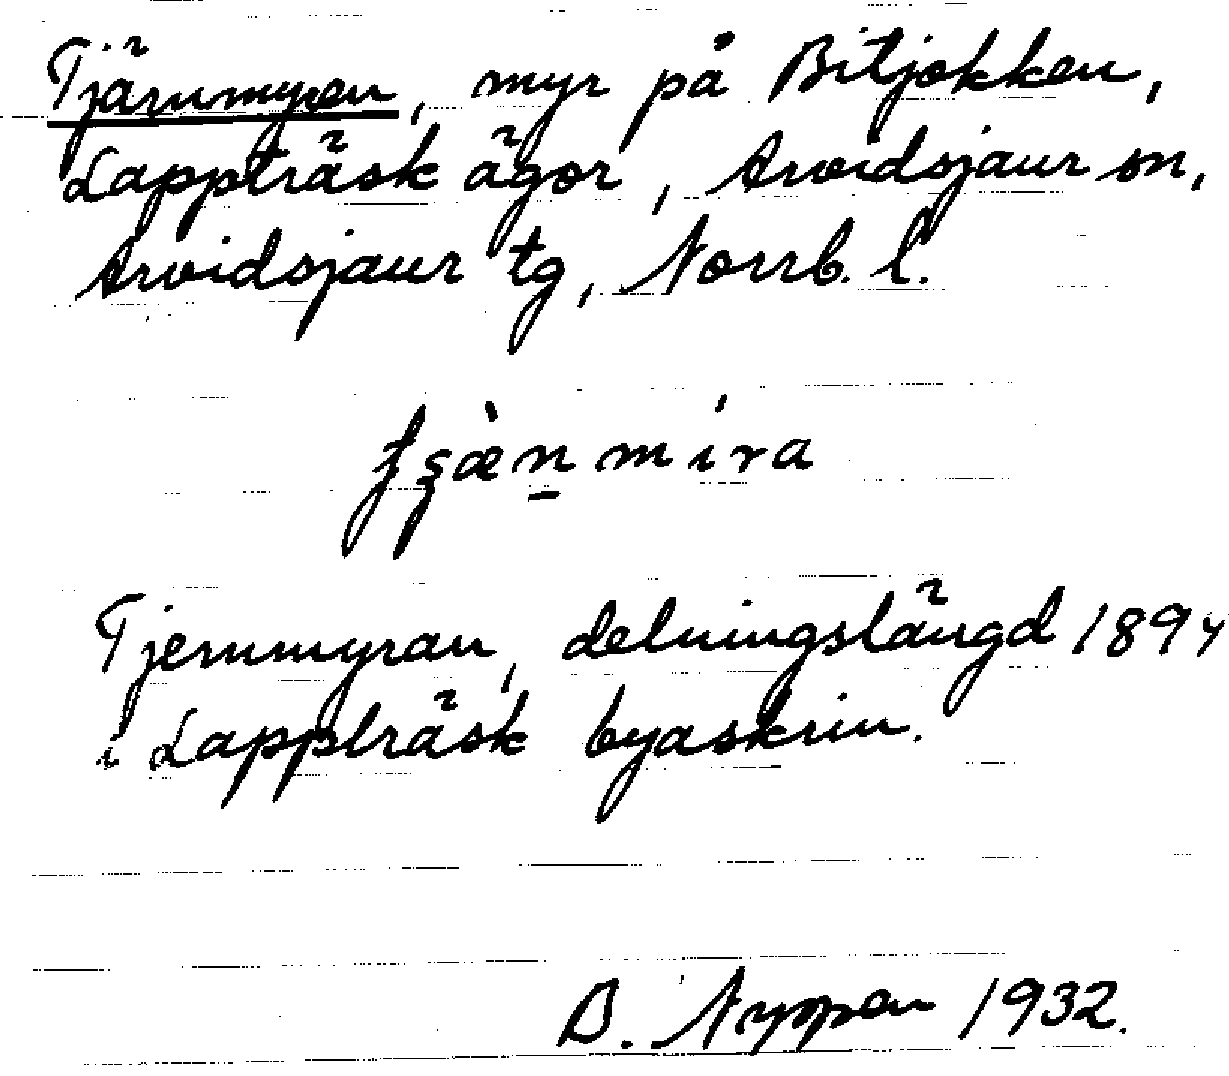 Tjärnmyren, myr på Bitjokken,
Lappträsk ägor, Arvidsjaur sn,
Arvidsjaur tg, Norrb. l.
Tjernmyran, delningslängd 1894
i Lappträsk byaskrin.
B. Nyppen 1932.